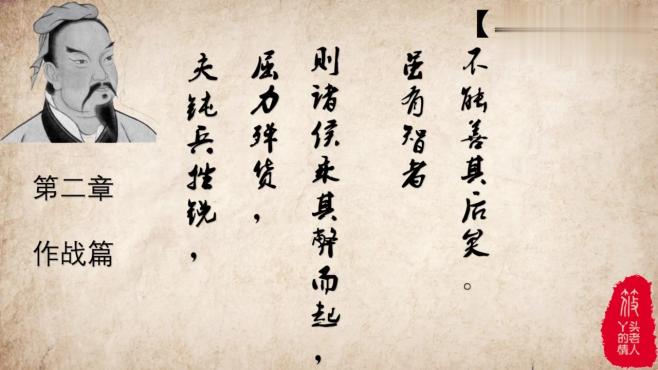 第二章
作战篇
夫钝兵挫锐，
屈力殚货，
則諸侯乘其弊而起，
虽有智者
不能善其后矣。
【
筱
头老人
丫的情